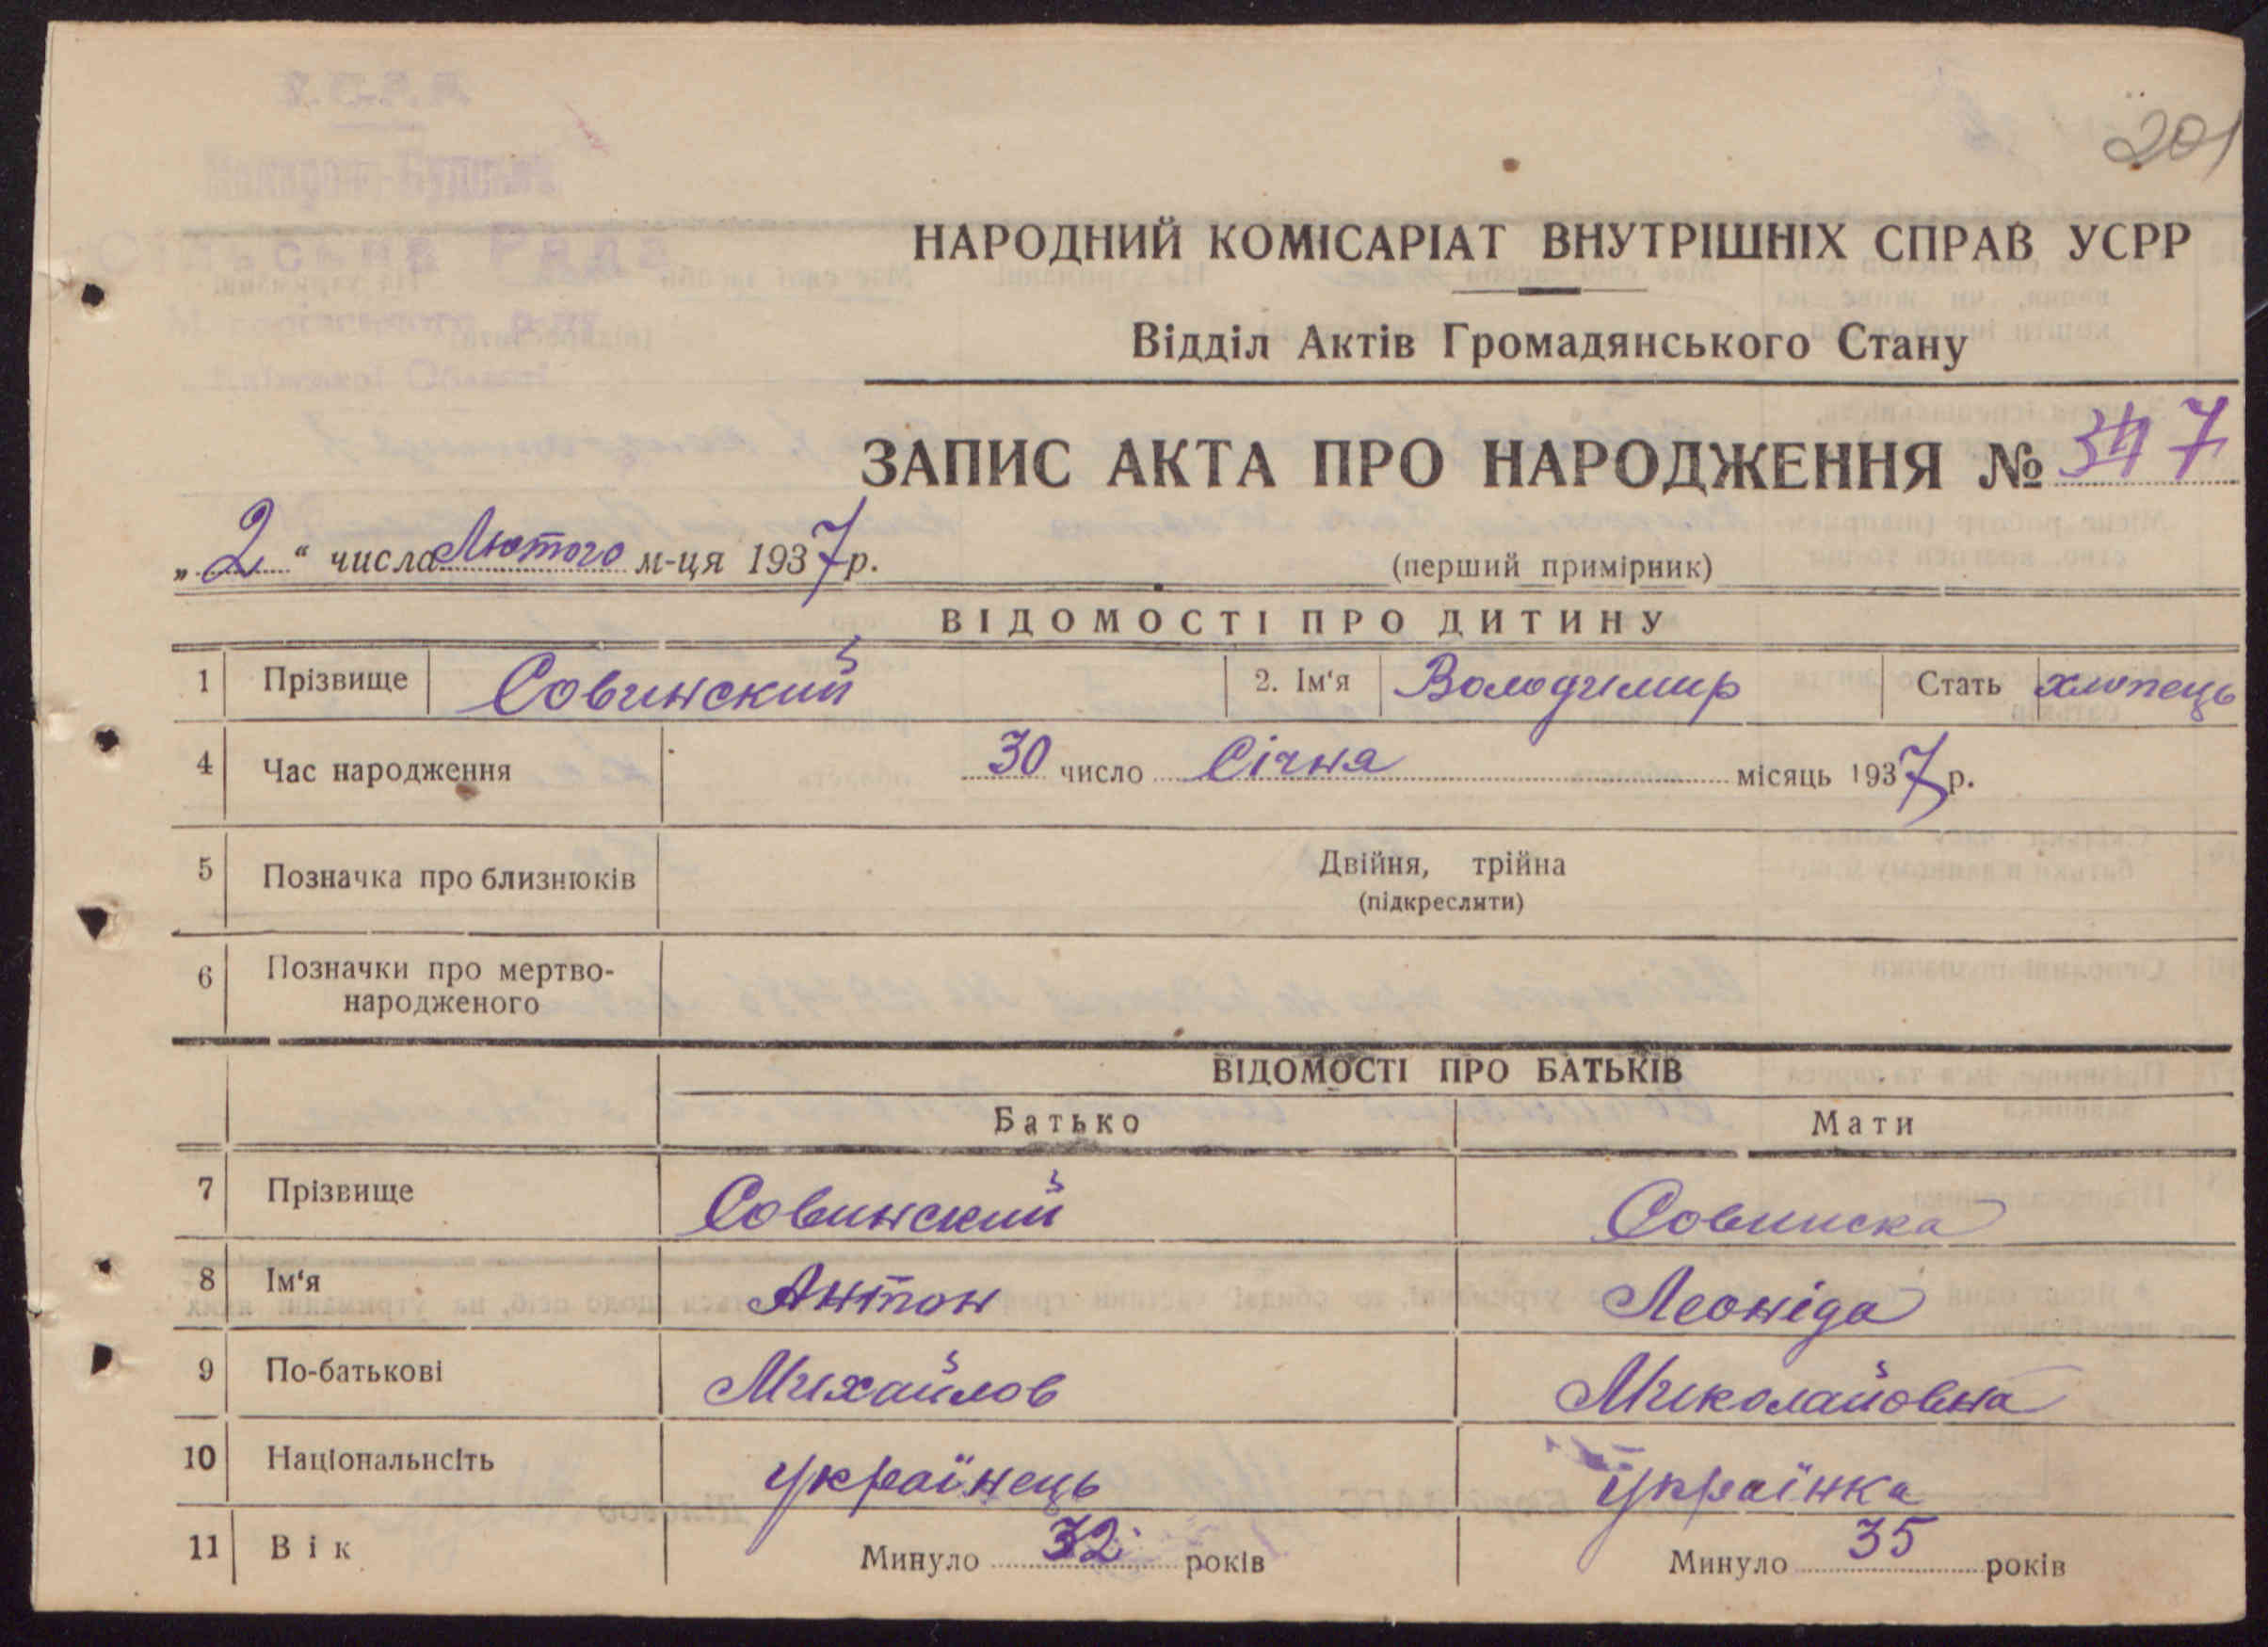 201
У.С.Р.Р.
Сільська Рада
НАРОДНИЙ КОМІСАРІАТ ВНУТРІШНІХ СПРАВ УСРР
Відділ Актів Громадянського Стану
ЗАПИС АКТА ПРО НАРОДЖЕННЯ № 7
„2“ числа Лютого м-ця 1937 р.
(перший примірник)
ВІДОМОСТІ ПРО ДИТИНУ
1 Прізвище Совинский 2. Ім'я Володимир Стать хлопець
4 Час народження 30 число Січня місяць 1937 р.
5 Позначка про близнюків Двійня, трійна
(підкреслити)
6 Позначки про мертво-
народженого
ВІДОМОСТІ ПРО БАТЬКІВ
Батько Мати
7 Прізвище Совинский Совинска
8 Ім'я Антон Леоніда
9 По-батькові Михайлов Миколайовна
10 Національнсіть українець Українка
11 Вік Минуло 32 років Минуло 35 років